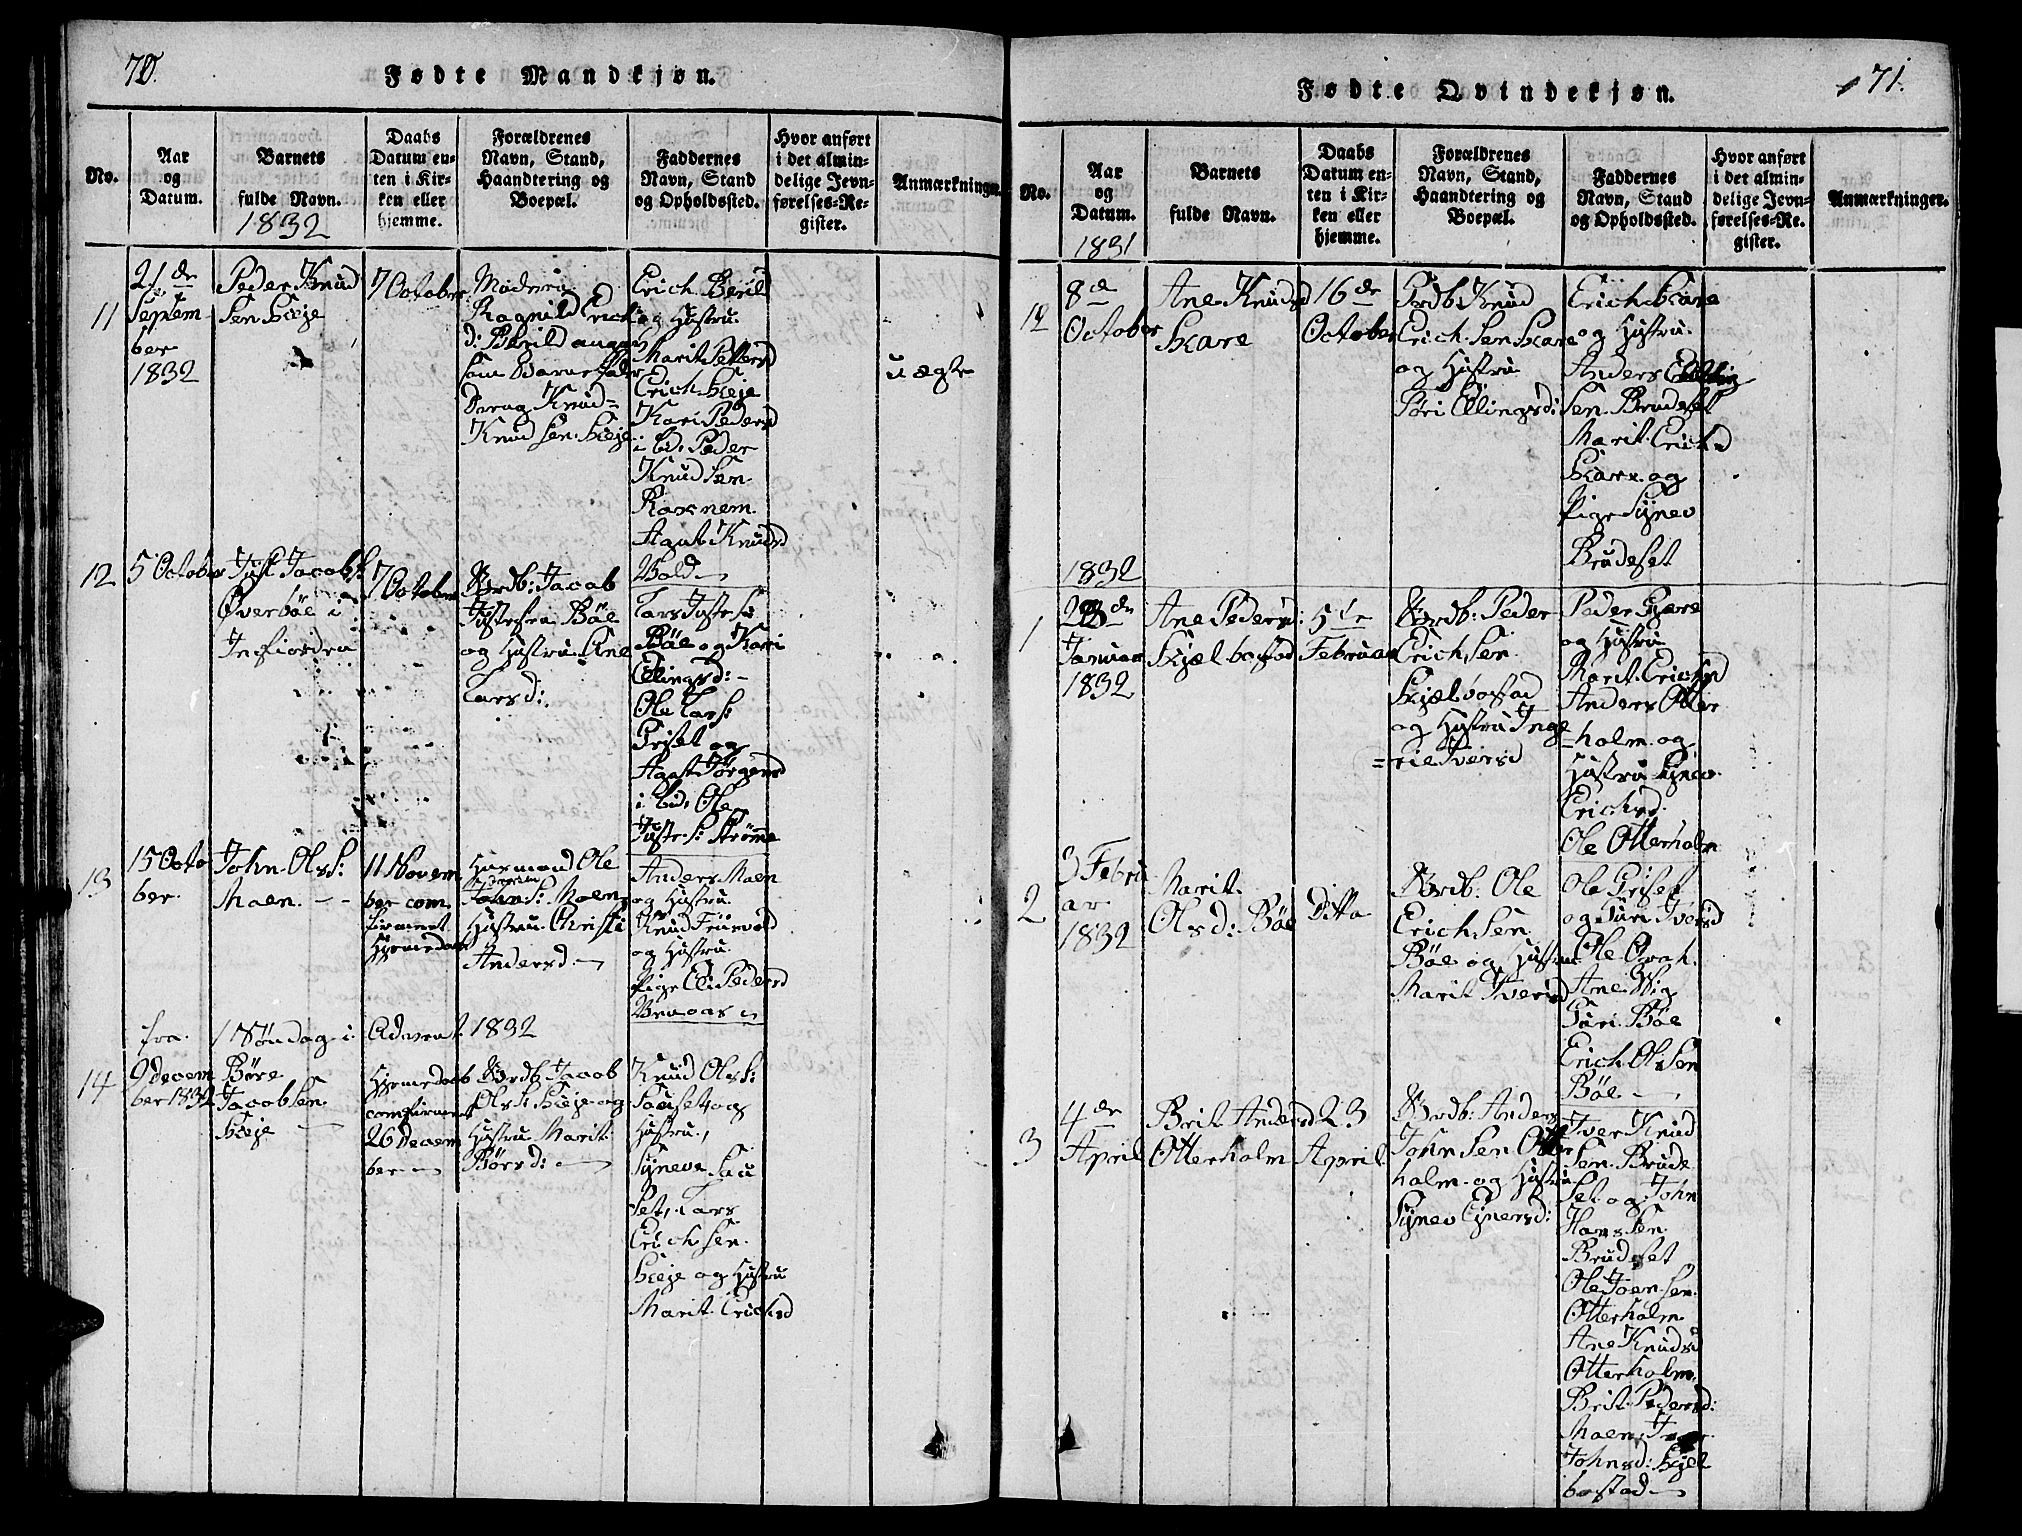 70.
Fødte Mandkjøn.
No.
Aar
og
Datum.
Barnets
fulde Navn.
1832
Daabs
Datum en-
ten i Kir-
ken eller
hjemme.
Forældrenes
Navn, Stand,
Haandtering og
Boepæl.
Faddernes
Navn, Stand
og Opholdssted.
Hvor anført
i det almin-
delige Jevn-
førelses-Re-
gister.
Anmærkninger.
11
21de
Septem
ber
1832
Peder Knud
Sen Heje
7 October
Moderen
Ragnild Erichs
d:
som Barnefader
Dreng Knud
Knudsen Heje
Erich
og Hustru
Marit Petters d
Erich Heje
Kari Peders d
Peder
Knudsen
Agat Knuds d
Wold
uægte
12
5 October
Just Jacobs:
Øverböe i
Infiorden
7 October
Grdb: Jacob
Justesen Böe
og Hustru Ane
Lars d:
Lars Justesen
Böe og Kari
Ellings d:
Ole Lars:
Griset og
Agat Jørgens d
Ole
Juste S: Strömme
13
15 Octo
ber
John Ols S:
Moen
11 Novem
ber com
firmeret
Hjemedøbt
Huusmand Ole
John S: Moen
Hustru Christi
Anders d:
Anders Moen
og Hustru
Knud
og Hustru
Pige Eli Peders d
fra 1 Søndag i Advent 1832
14
9 decem
ber 1832
Böre
Jacobsen
Heje
Hjemedøbt
comfirmeret
26 Decem
ber
Grdb: Jacob
Ols S: Heje og
Hustru Marit
Börs d:
Knud Ols S:
Souset og
Hustru,
Synneve Sou
set, Lars
Erichsen
Heje og Hustru
Marit Erichs d
71.
Fødte Qvindekjøn.
No.
Aar
og
Datum.
1831
Barnets
fulde Navn.
Daabs
Datum en-
ten i Kir-
ken eller
hjemme.
Forældrenes
Navn, Stand,
Haandtering og
Boepæl.
Faddernes
Navn, Stand
og Opholdssted.
Hvor anført
i det almin-
delige Jevn-
førelses-Re-
gister.
Anmærkninger.
12
8de
October
Ane Knuds d
Skare
16de
October
Grdb: Knud
Erichsen Skare
og Hustru
Ellings d:
Erich Skare
og Hustru
Anders Elling
Sen Brudeset
Marit Erichs d
Skare og
Pige Synev
Brudeset
1832
1
de
Januar
1832
Ane Peders d:
Skjelbostad
5te
Februar
Grdb: Peder
Erichsen
Skjelbostad
og Hustru Inge
=rie Ivers d
Peder Skare
og Hustru
Marit Erichs d
Anders Otter
=holm og
Hustru Synev
Erichs d:
Ole Otterholm
2
3 Febru
ar
1832
Marit
Ols d: Böe
Ditto
Grdb: Ole
Erichsen
Böe og Hustru
Marit Ivers d
Ole Griset
og Guri Ivers d
Ole
Ane
Guri Böe
Erich Olsen
Böe
3
4de
April
Brit Anders d
Otterholm
23
April
Grdb: Anders
Johnsen Otter
holm og Hustru
Synev Ejners d:
Iver Knud
Sen Brude
Set og John
Hans Sen
Brudeset
Ole Joensen
Otterholm
Ane Knuds d
Otterholm
Brit Peders d:
Moen,
Johns d: Skjel
bostad